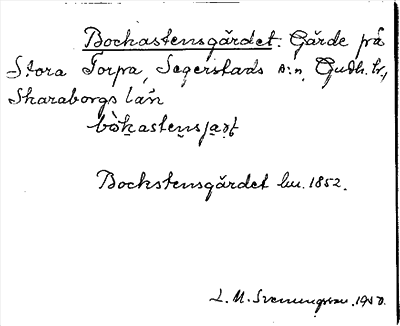 Bockastensgärdet. Gärde på
Stora Torpa, Segerstads s:n, Gudh. hd,
Skaraborgs län
Bockstensgärdet hm. 1852.
L. M. Svenungsson. 1950.